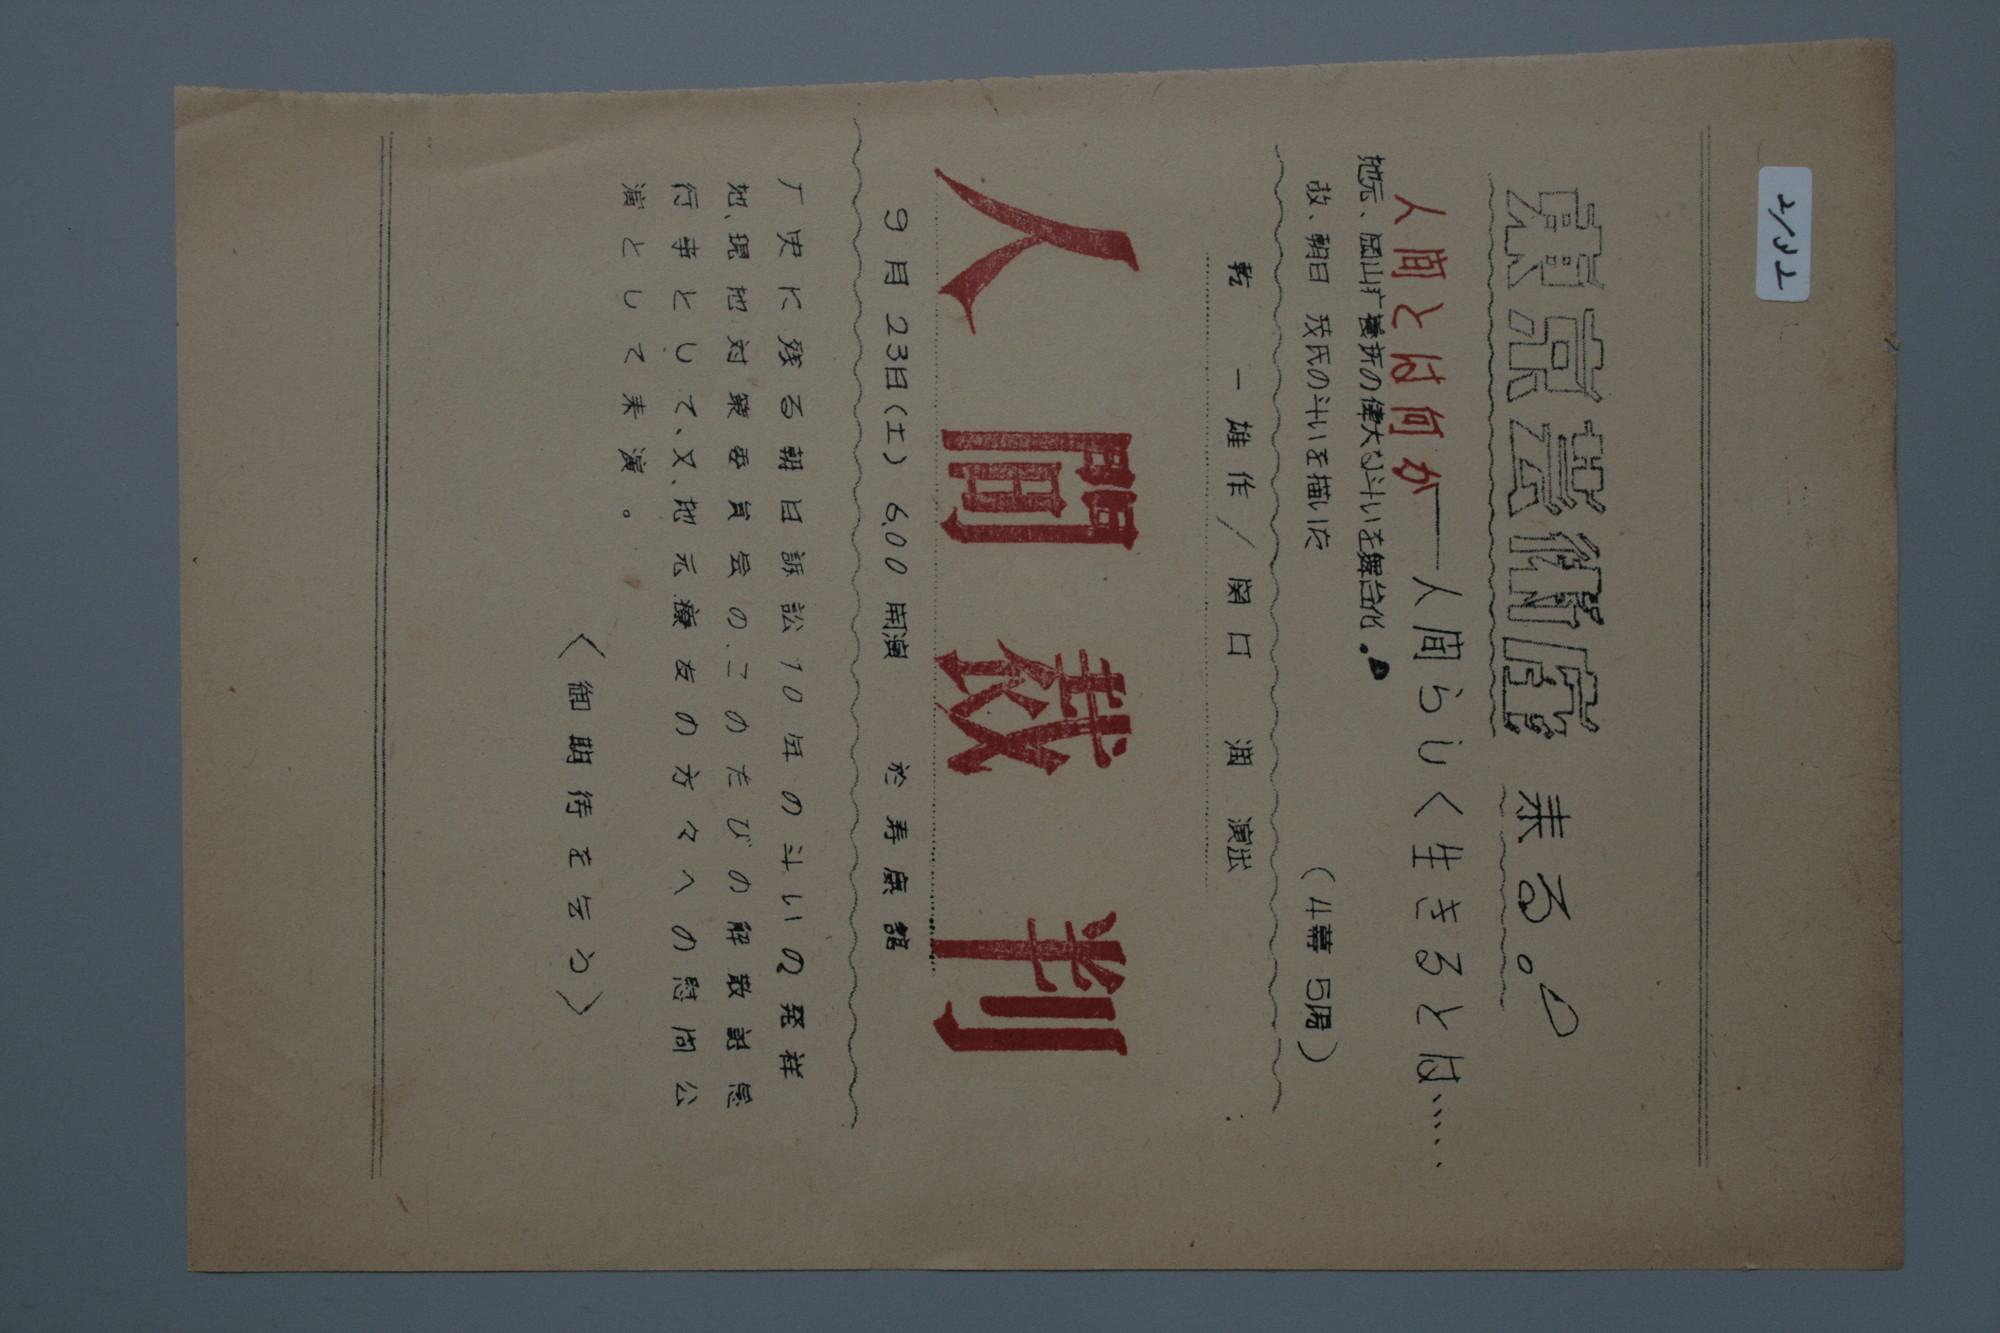 東京芸術座 来る。!
人間とは何か――人間らしく生きるとは・・・・・
地元、岡山療養所の偉大な斗いを舞台化!
故、朝日 茂氏の斗いを描いた (4幕 5場)
乾 一雄 作/関口 潤 演出
人間裁判
9月23日(土) 6.00 開演 於 寿康館
厂史に残る朝日訴訟10年の斗いの発祥
地、現地対策委員会の、このたびの解散記念
行事として、又、地元療友の方々への慰問公
演として来演。
〈御期待を乞う〉